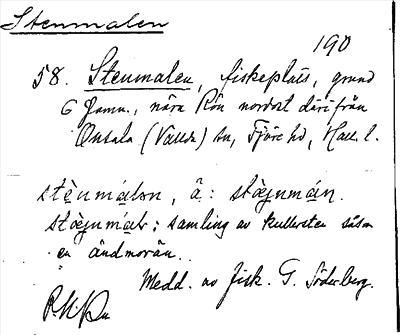 Stenmalen
190
58. Stenmalen, fiskeplats, grund
6 famn., nära Rön nordost därifrån
Onsala (Vallda) sn, Fjäre hd, Hall. l.
stènumálon, ä: stæjnumáin.
stæjnumálr: samling av kullersten såsom
en ändmorän.
Medd. av fisk. G. Söderberg.